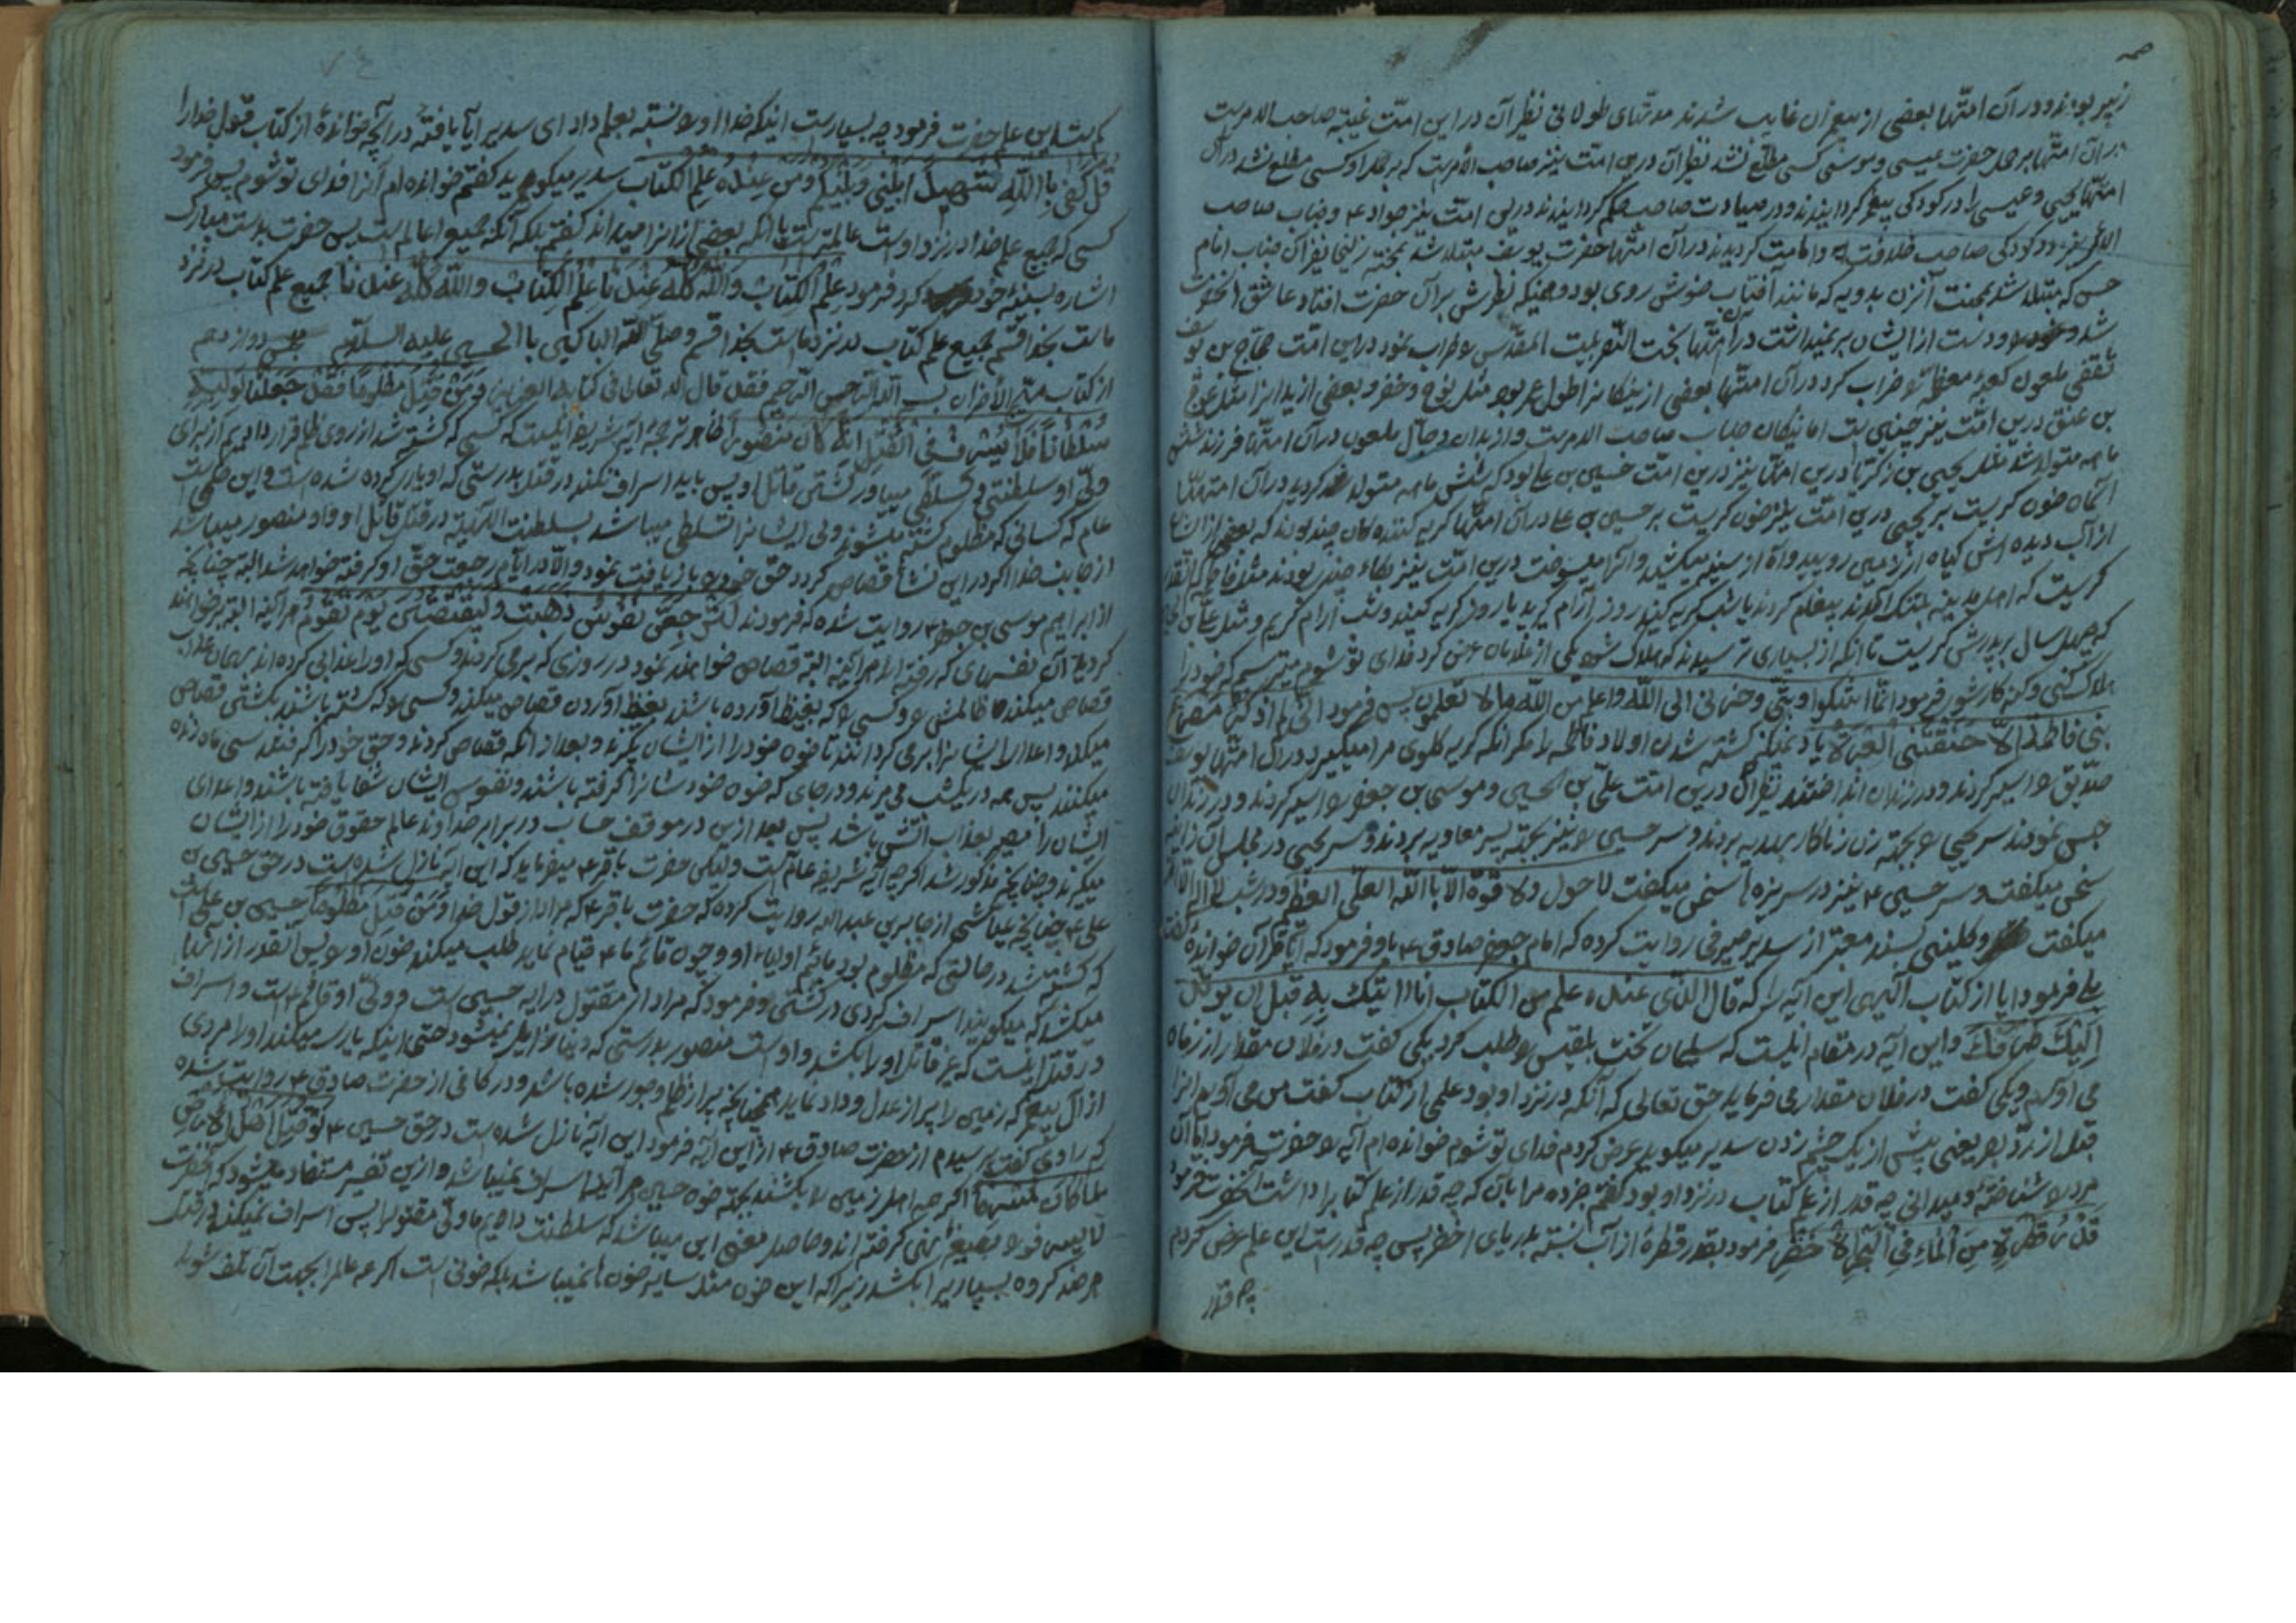 زبیر بودند و در آن امتها بعضی از پیغمبران غایب شدند مدتهای طولانی نظیر آن در این امت غیبة صاحب الامریست
در آن امتها بر حمل حضرت عیسی و موسی کسی مطلع نشد نظیر آن درین امت نیز صاحب الامریست که بر حمل او کسی مطلع نشد در آن
امتها یحیی و عیسی را در کودکی پیغمبر گردانیدند و در صباوت صاحب حکم گردانیدند درین امت نیز جواد ع و جناب صاحب
الامر نیز در کودکی صاحب خلافت و امامت گردیدند در آن امتها حضرت یوسف مبتلا شد بمحنة زلیخا نظیر آن جناب امام
حسن که مبتلا شد بمحنت آنزن بدویه که مانند آفتاب خوش روی بود و همینکه نظرش بر آن حضرت افتاد عاشق آنحضرت
شد و دست از ایشان بر نمیداشت در آن امتها بخت النصر بیت المقدس را خراب نمود در این امت حجاج بن یوسف
ثقفی ملعون کعبه معظمه را خراب کرد در آن امتها بعضی از نیکان را طول عمر بود مثل نوح و خضر و بعضی از بدان را مثل عوج
بن عنق درین امت نیز چنین است اما نیکان جناب صاحب الامریست و از بدان دجال ملعون در آن امتها فرزند شش
ماهه متولد شد مثل یحیی بن زکریا درین امت نیز درین امت حسین بن علی بود که شش ماهه متولد گردید در آن امتها
آسمان خون گریست بر یحیی درین امت نیز خون گریست بر حسین بن علی در آن امتها گریه کننده گان چند بودند که بعضی از ایشان
از آب دیده اش گیاه از زمین رویید و آه از سینه میکشید و آنها میسوخت درین امت نیز بکاء چند بودند مثل فاطمه که آنقدر
گریست که اهل مدینه بتنگ آمدند پیغام کردند یا شب گریه کنید روز آرام گیرید یا روز گریه کنید و شب آرام گیریم و مثل علی بن الحسین
که چهل سال بر پدرش گریست تا آنکه از بسیاری ترسیدند که هلاک شود یکی از غلامان عرض کرد فدای تو شوم میترسم که خود را
هلاک کنی و کار شود فرمود انما اشکوا وبثی وحزنی الی الله واعلم من الله ما لا تعلمون پس فرمود انی لم اذکر مصرع
بنی فاطمة الا خنقتنی العبرة یاد نمیکنم کشته شدن اولاد فاطمه را مگر آنکه گریه گلوی مرا میگیرد در آن امتها یوسف
صدیق را اسیر کردند و در زندان انداختند نظیر آن درین امت علی بن الحسین و موسی بن جعفر را اسیر کردند و در زندان
حبس نمودند سر یحیی را بجهة زن زناکار بهدیه بردند و سر حسین را نیز بجهة پسر معاویه بردند و سر یحیی در مجلس آن زانیه
سخن میگفت و سر حسین ع نیز در سر نیزه سخن میگفت لا حول ولا قوة الا بالله العلی العظیم و در شب
میگفت و کلینی بسند معتبر از سدیر صیرفی روایت کرده که امام جعفر صادق ع باو فرمود که آیا قرآن خوانده گفت
بلی فرمود آیا از کتاب الهی این آیه را که قال الذی عنده علم من الکتاب انا اتیک به قبل ان یرتد
الیک طرفک و این آیه در مقام اینست که سلیمان تخت بلقیس را طلب کرد یکی گفت در فلان مقدار از زمان
می آورم و یکی گفت در فلان مقدار می فرماید حق تعالی که آنکه در نزد او بود علمی از کتاب گفت من می آورم آنرا
قبل از یعنی پیش از یک چشم زدن سدیر میگوید عرض کردم فدای تو شوم خوانده ام آیه را حضرت فرمود آیا آن
مرد را شناختهٔ و میدانی چه قدر از علم کتاب در نزد او بود گفتم خبر ده مرا بآن که چه قدر از علم کتاب را داشت آنحضرت فرمود
قدر قطرة من الماء فی البحر الاخضر فرمود بقدر قطرهٔ از آب نسبة بدریای اخضر پس چه قدر است این علم عرض کردم
چه قدر
کم است این علم حضرت فرمود چه بسیار است اینکه خدا او را نسبة بعلم داد ای سدیر آیا یافتهٔ در آنچه خواندهٔ از کتاب قول خدا را
قل کفی بالله شهیدا بینی وبینکم ومن عنده علم الکتاب سدیر میگوید گفتم خوانده ام آنرا فدای تو شوم پس فرمود
کسی که جمیع علم خدا در نزد اوست عالمتر است یا آنکه بعضی از آنرا میداند گفتم بلکه آنکه جمیع را عالم است پس حضرت بدست مبارک
اشاره بسینه خود کرد فرمود علم الکتاب والله کله عندنا علم الکتاب والله کله عندنا جمیع علم کتاب در نزد
ماست بخدا قسم جمیع علم کتاب در نزد ماست بخدا قسم وصلی الله الباکین بالحسین علیه السلام مجلس دوازدهم
از کتاب مهیج الاحزان بسم الله الرحمن الرحیم فقد قال الله تعالی فی کتابه العزیز ومن قتل مظلوما فقد جعلنا لولیه
سلطانا فلا یسرف فی القتل انه کان منصورا ظاهر ترجمه آیه شریفه اینست که کسی که کشته شد از روی ظلم قرار دادیم از برای
ولی او سلطنتی و تسلطی در کشتن قاتل او پس باید اسراف نکند در قتل بدرستی که او یاری کرده شده است و این حکمی است
عام که کسانی که مظلوم کشته میشوند ولی ایشانرا تسلطی میباشد بسلطنت الهیه در قتل قاتل او و او منصور میباشد
از جانب خدا اگر در این نشأ قصاص کردد حق خود را بازیافت نمود والا در ایام رجعت حق او گرفته خواهد شد البته چنانچه
از ابراهیم موسی بن جعفر ع روایت شده که فرمودند لترجعن نفوس ذهبت ولیقتصن یوم تقوم هر آینه البته بر خواهند
گردید آن نفسهای که رفته اند هر آینه البته قصاص خواهند نمود در روزی که بر می گردند و کسی که او را عذابی کرده اند بهمان عذاب
قصاص میکند ظالمش را و کسی را که بغیظ آورده باشند بغیظ آوردن قصاص میکند و کسی را که کشته باشند بکشتن قصاص
میکند و اعدا را ایشانرا بر می گردانند تا خون خود را از ایشان بگیرند و بعد از آنکه قصاص کردند و حق خود را گرفتند سی ماه زنده
میکنند پس همه در یکشب می میرند در جای که خون خود شانرا گرفته باشند و نفوس ایشان شفا یافته باشند و اعدای
ایشان را مصیر بعذاب آتش باشد پس بعد ازین در موقف حساب در برابر خداوند عالم حقوق خود را از ایشان
میگیرند و چنانچه مذکور شد اگر چه آیه شریفه عام است ولیکن حضرت باقر ع میفرماید که این آیه نازل شده است در حق حسین بن
علی ع چنانچه عیاشی از جابر بن عبدالله روایت کرده که حضرت باقر ع که مراد از قول خدا ومن قتل مظلوما حسین بن علی است
که کشته شد در حالتی که مظلوم بود مائیم اولیاء او و چون قائم ما ع قیام نماید طلب میکند خون او را پس آنقدر از آنها
میکشد که میگویند اسراف کردی در کشتن و فرمود که مراد از مقتول در آیه حسین است و ولی او قائم ع است و اسراف
در قتل اینست که غیر قاتل او را بکشد و اوست منصور بدرستی که دنیا زایل نمیشود حتی اینکه یاری میکند او را مردی
از آل پیغمبر که زمین را پر از عدل و داد نماید همچنانچه پر از ظلم و جور شده باشد و در کافی از حضرت صادق ع روایت شده
که راوی گفت پرسیدم از حضرت صادق ع از این آیه فرمود این آیه نازل شده است در حق حسین ع لو قتل اهل الارض
ما کان اگر همه اهل زمین را بکشند بجهة خون حسین هر آینه اسراف نمیباشد و ازین تفسیر مستفاد میشود که آنحضرت
لا یسرف را بصیغه نهی گرفته اند و حاصل معنی این میباشد که سلطنت داده ایم ما ولی مقتول را پس اسراف نمیکند در قتل
هر چند گروه بسیاری را بکشد زیرا که این خون مثل سایر خون ها نمیباشد بلکه خونی است اگر همه عالم را بجهت آن تلف شوند